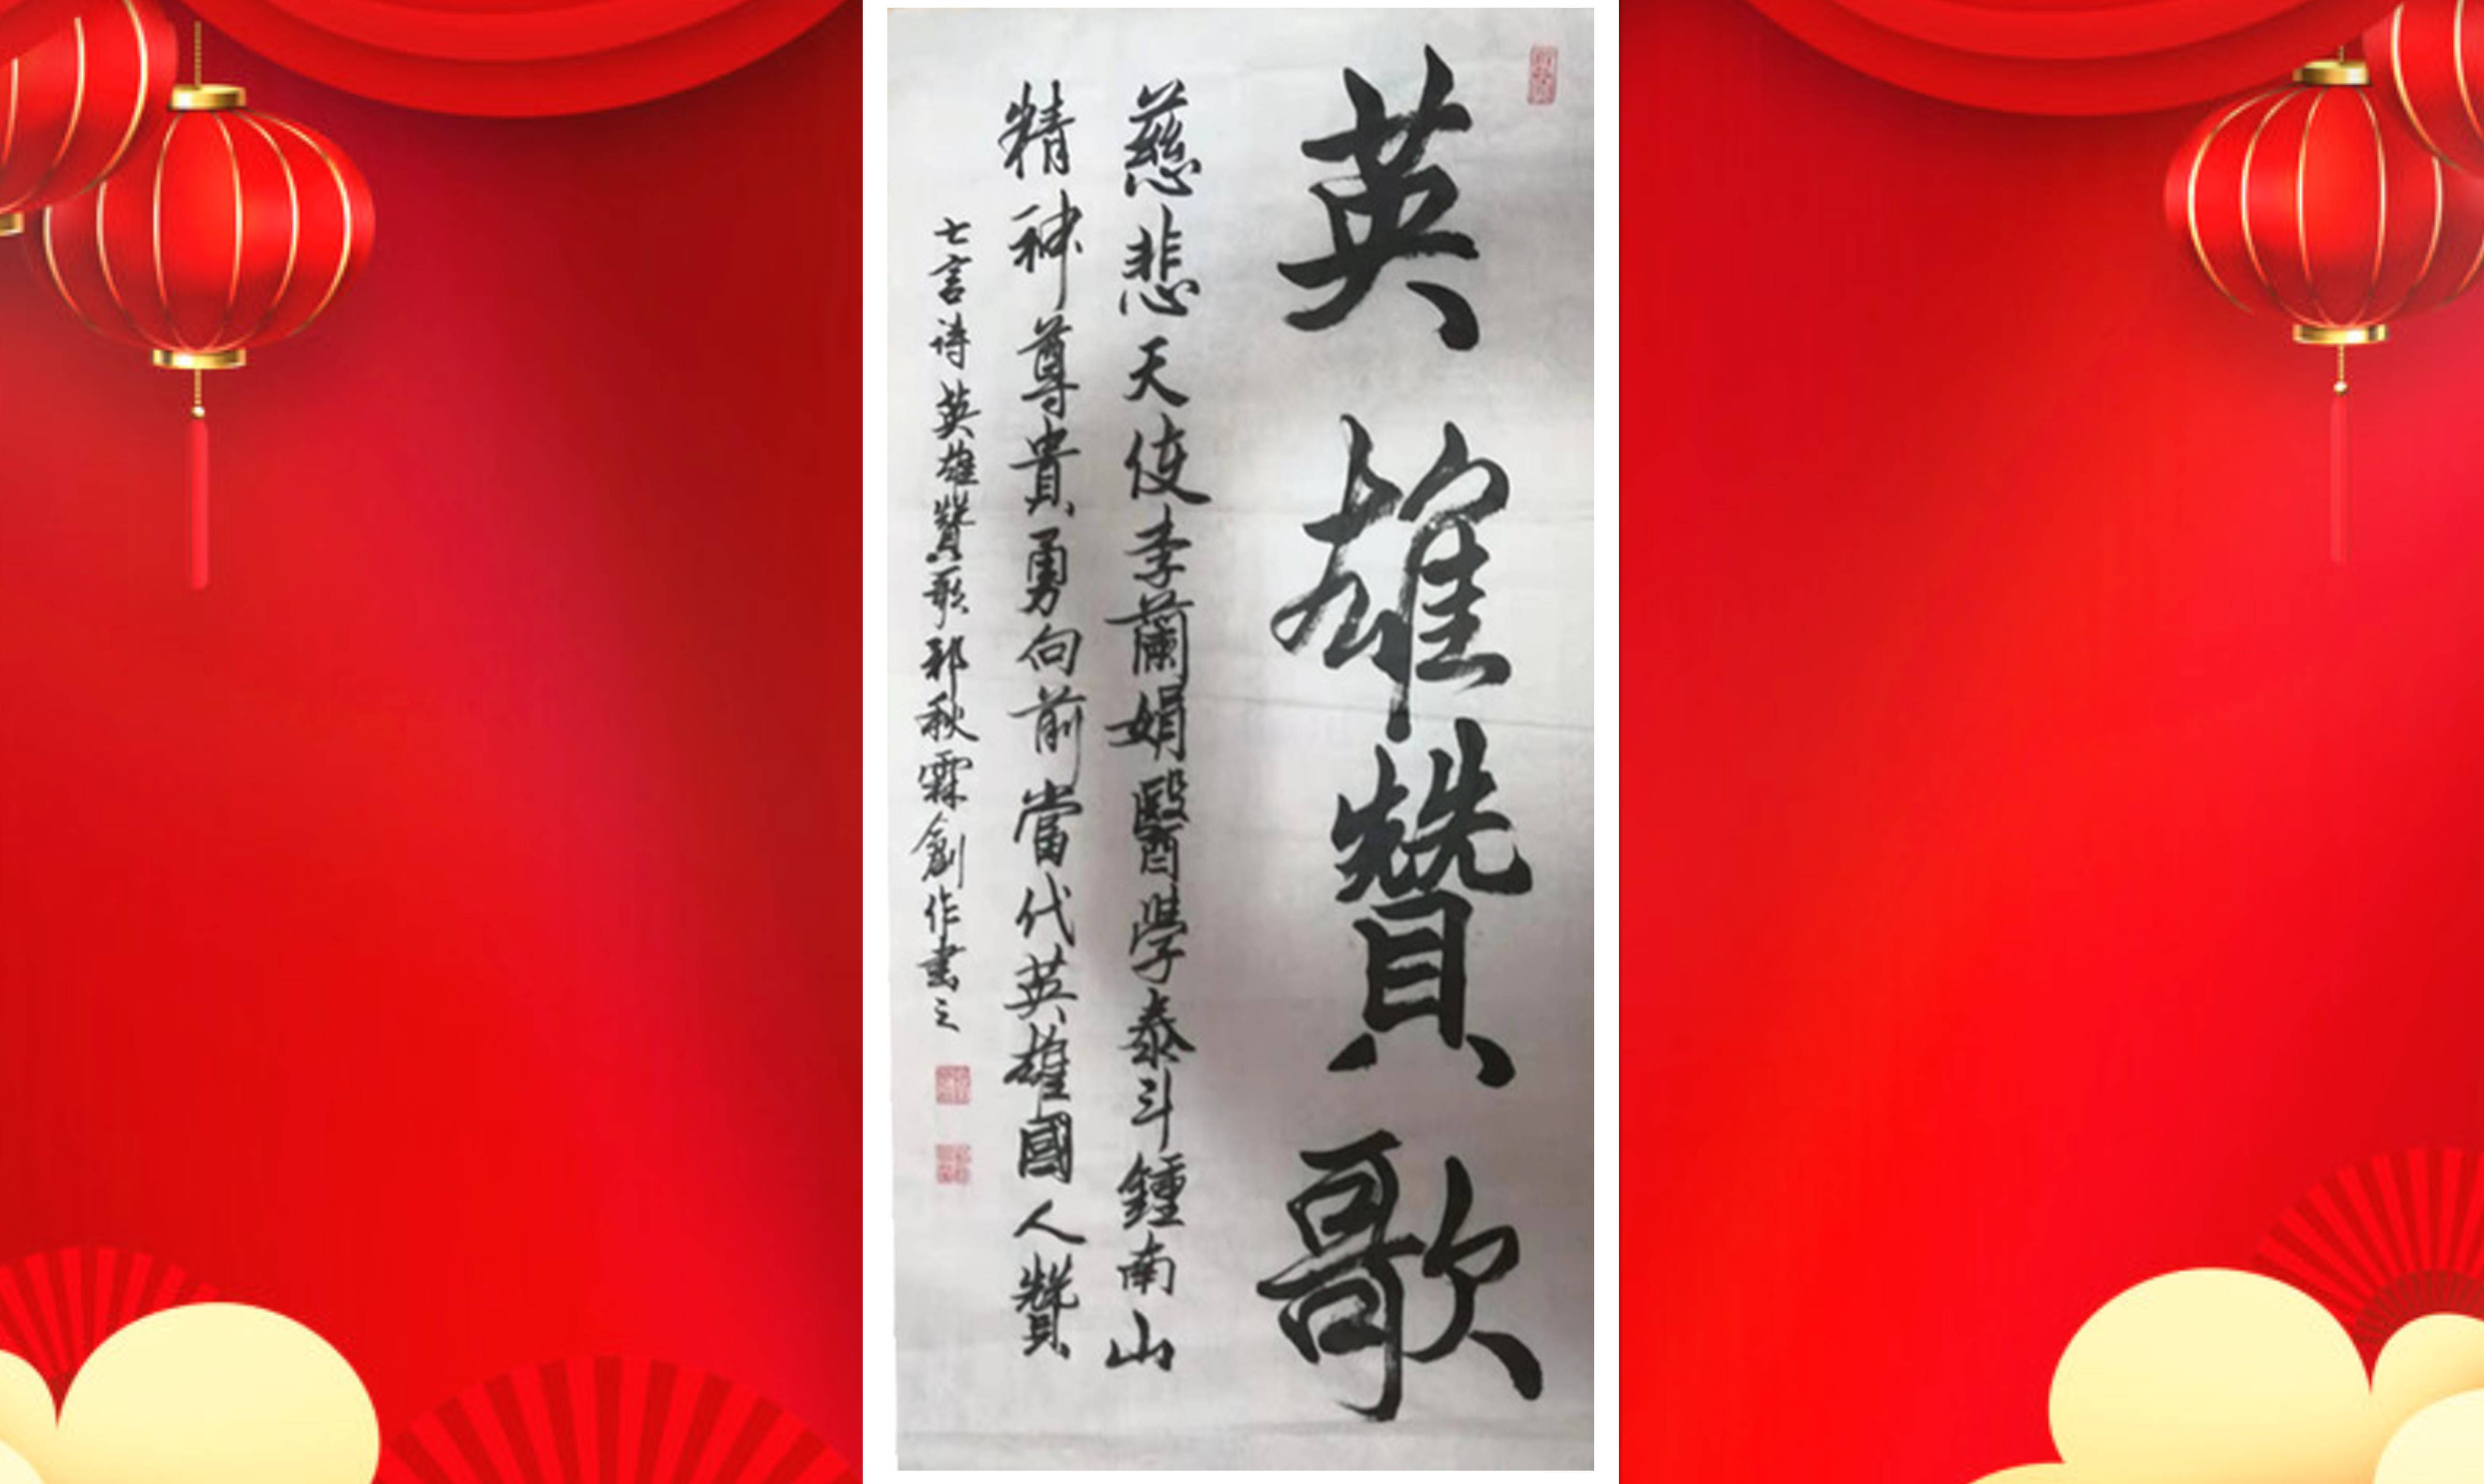 英雄贊歌
慈悲天使李蘭娟醫學泰斗鍾南山
精神尊貴勇向前當代英雄國人贊
七言诗英雄贊歌郭秋霖創作書之